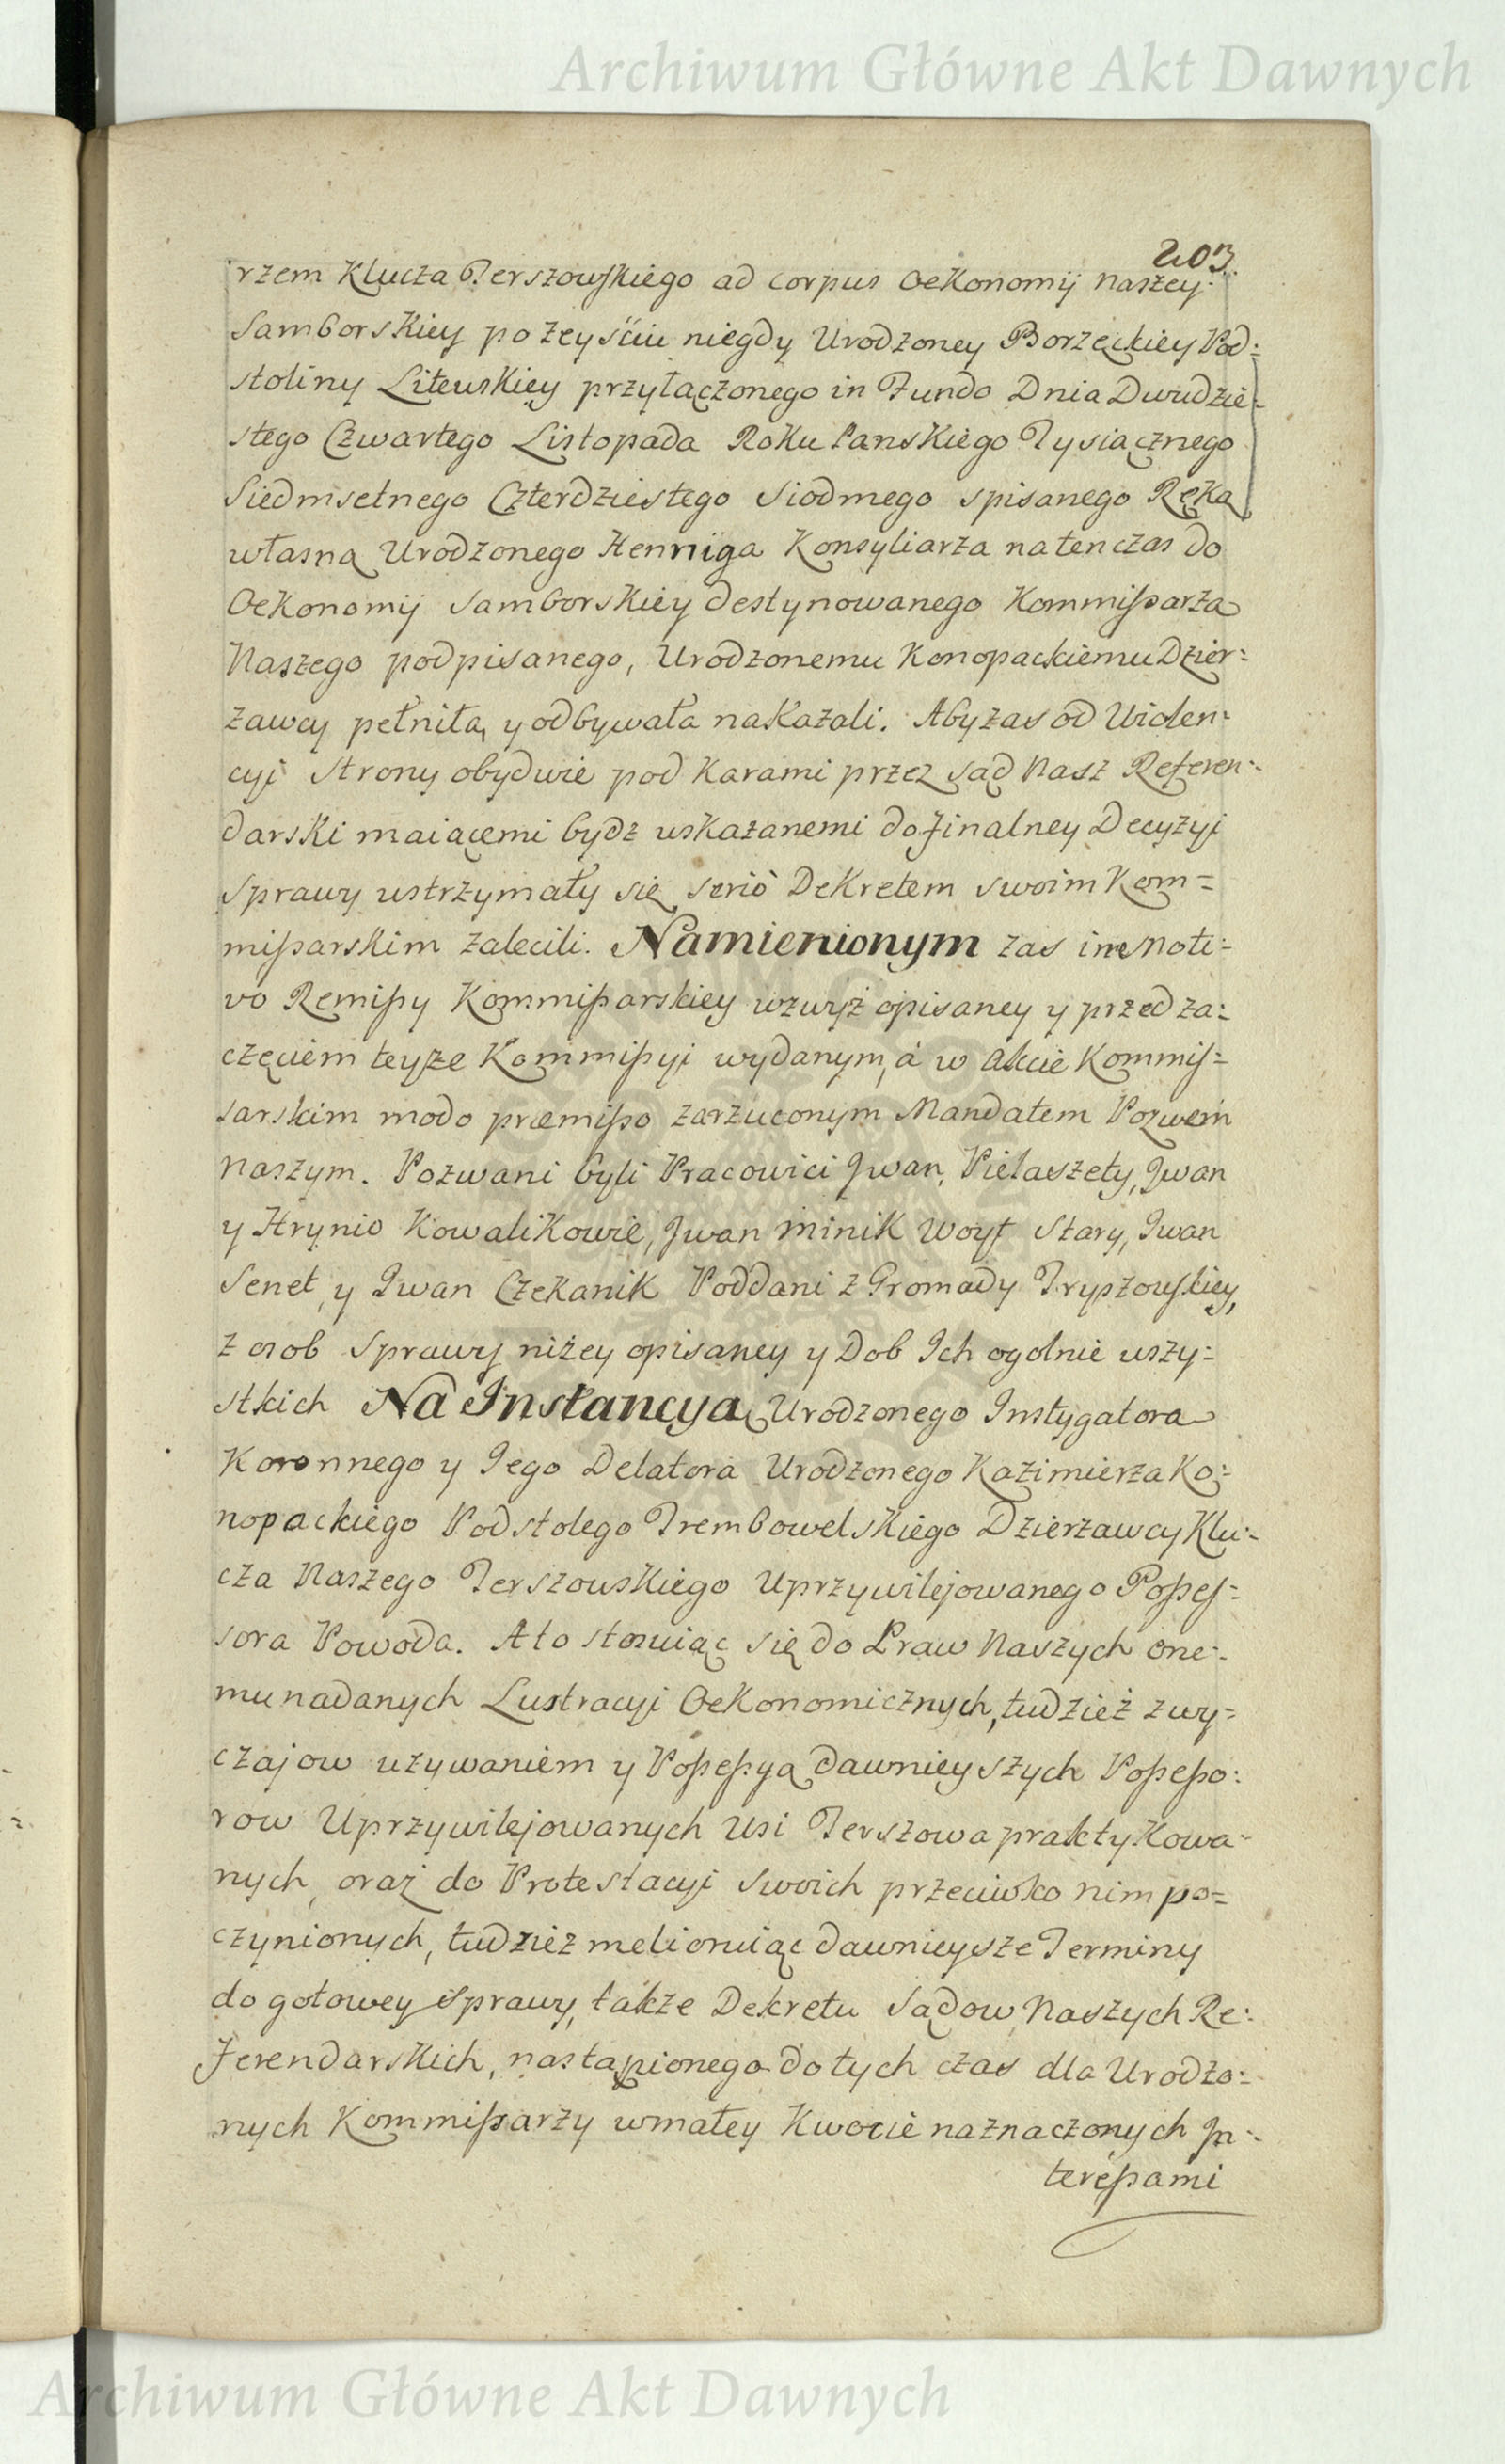 Archiwum Główne Akt Dawnych
203.
rzem Klucza Terszowskiego ad corpus Oekonomij naszey
Samborskiey po ześciu niegdy Urodzoney Borzęckiey Pod:
stoliny Litewskiey przyłączonego in Fundo Dnia Dwudzie:
stego Czwartego Listopada Roku Pańskiego Tysiącznego
Siedmsetnego Czterdziestego Siodmego spisanego Ręką
własną Urodzonego Henniga Konsyliarza natenczas do
Oekonomij Samborskiey destynowanego Kommißarza
Naszego podpisanego, Urodzonemu Konopackiemu Dzier:
zawcy pełniła, y odbywała nakazali. Aby zas od Wiolen:
cyi Strony obydwie pod karami przez Sąd Nasz Referen:
darski maiącemi bydz uskazanemi do finalney Decyzyi
Sprawy ustrzymały się seriò Dekretem swoim Kom=
mißarskim zalecili. Namienionym zas in Moti:
vo Remißy Kommißarskiey wzwyż opisaney y przed za:
częciem teyże Kommißyi wydanym, á w akcie Kommis=
sarskim modo præmißo zarzuconym Mandatem Pozwem
naszym. Pozwani byli Pracowici Jwan, Pielaszety, Jwan
y Hrynio Kowalikowie, Jwan Minik Woyt Stary, Jwan
Senet, y Jwan Czekanik Poddani z Gromady Tryszowskiey,
z osob Sprawy niżey opisaney y Dob Ich ogolnie wszy:
stkich Na Instancyą Urodzonego Instygatora
Koronnego y Iego Delatora Urodzonego Kazimierza Ko:
nopackiego Podstolego Trembowelskiego Dzierzawcy Klu:
cza Naszego Terszowskiego Uprzywilejowanego Poßes=
sora Powoda. A to stosuiąc się do Praw Naszych one:
mu nadanych Lustracyi Oekonomicznych, tudzież zwy=
czajow uzywaniem y Poßeßyą dawnieyszych Poßeßo:
row Uprzywilejowanych Wsi Terszowa praktykowa:
nych, oraz do Protestacyi Swoich przeciwko nim po=
czynionych, tudziez melioruiąc dawnieysze Terminy
do gotowey Sprawy, także Dekretu Sądow Naszych Re:
ferendarskich, nastąpionego do tych czas dla Urodzo:
nych Kommißarzy w małey Kwocie naznaczonych In:
tereßami
Archiwum Główne Akt Dawnych